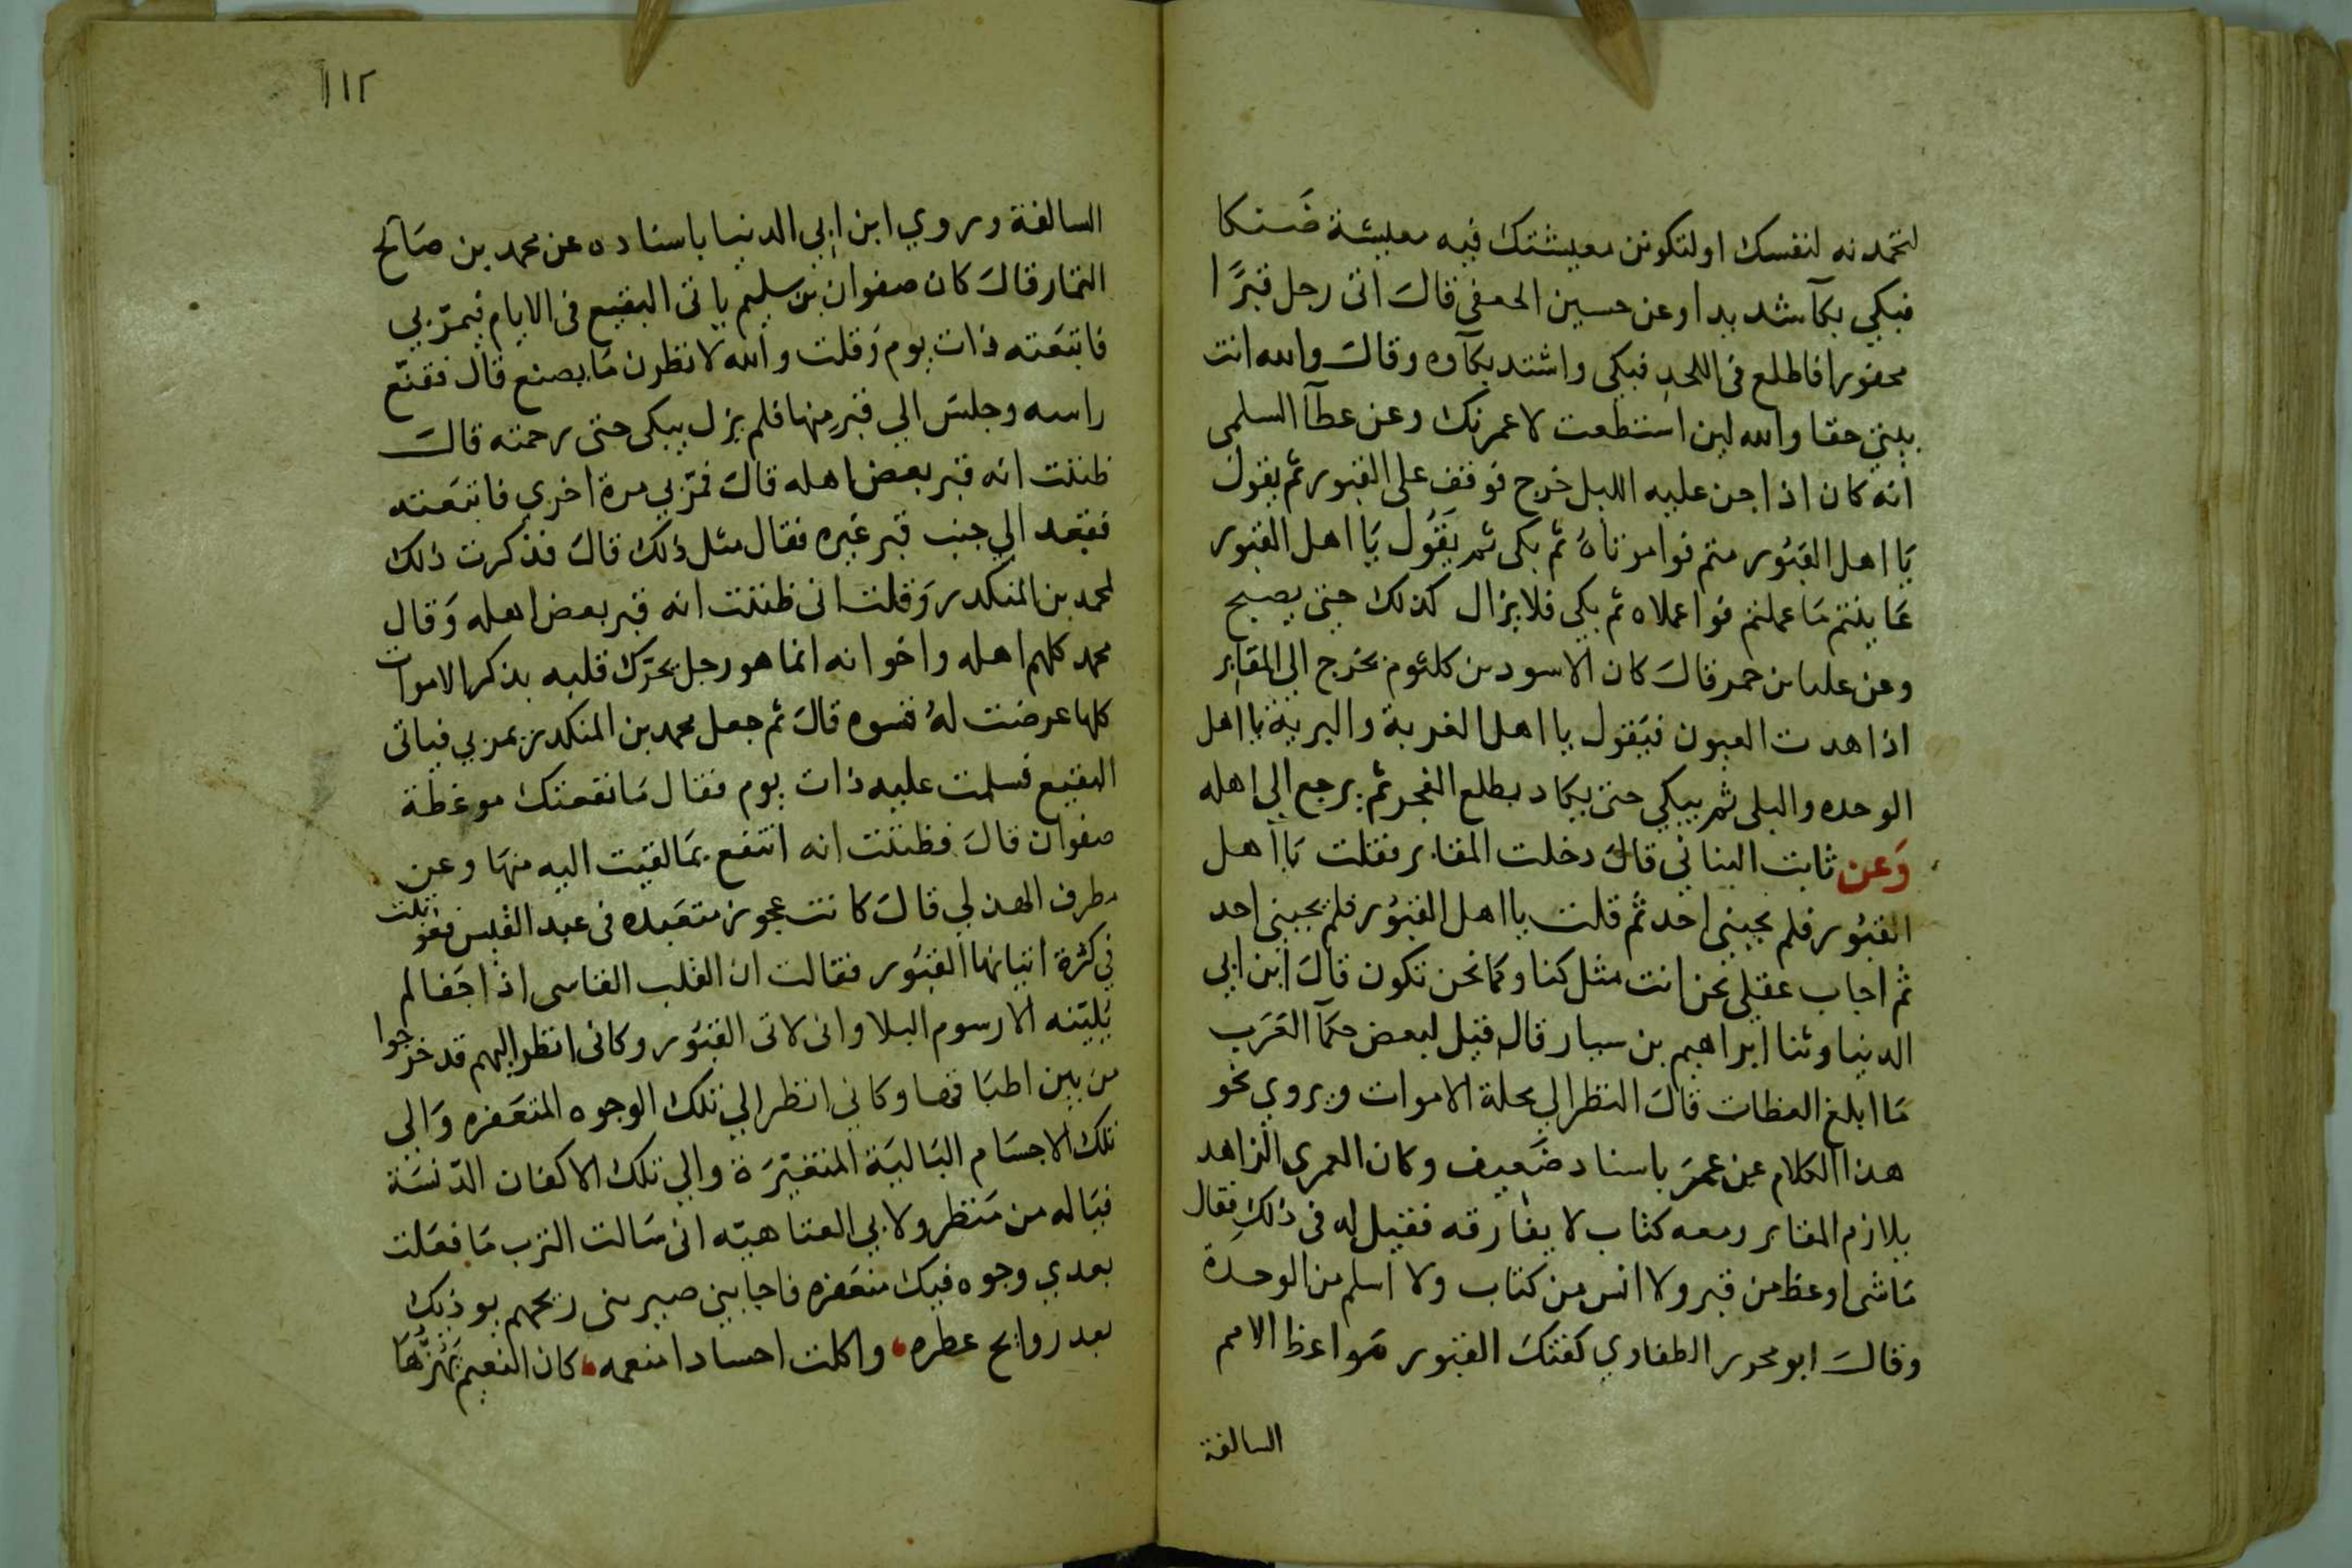 لتحمدنه لنفسك او لتكونن معيشتك فيه معيشة ضنكا
فبكي بكآ شديدا وعن حسين الجعفي قال اتى رجل قبرًا
محفورا فاطلع في اللحد فبكي واشتد بكآوه وقال والله انت
بيتي حقا والله لين استطعت لاعمرنك وعن عطآ السلمي
انه كان اذا جن عليه الليل خرج فوقف على القبور ثم يقول
يا اهل القبور متم فوا موتاه ثم بكى ثم يقول يا اهل القبور
عاينتم ما عملتم فوا عملاه ثم بكي فلا يزال كذلك حتى يصبح
وعن قال كان الاسود بن كلثوم يخرج الي المقابر
اذا هدت العيون فيقول يا اهل الغربة والتربة يا اهل
الوحده والبلى ثم يبكي حتى يكاد يطلع الفجر ثم يرجع الي اهله
وعن ثابت البناني قال دخلت المقابر فقلت يا اهل
القبور فلم يجيبني احد ثم قلت يا اهل القبور فلم يجيبني احد
ثم اجاب عقلي نحن انت مثل كنا وكما نحن تكون قال ابن ابي
الدنيا وثنا ابراهيم بن سيار قال قيل لبعض حكمآ العرب
ما ابلغ العظات قال النظر الي محلة الاموات ويروي نحو
هذا الكلام عن عمر باسناد ضعيف وكان العمري الزاهد
يلازم المقابر ومعه كتاب لا يفارقه فقيل له في ذلك فقال
ما شى اوعظ من قبر ولا انس من كتاب ولا اسلم من الوحدة
وقال ابو محرر الطفاوي كفتك القبور مواعظ الامم
السالفة
١١٢
السالفة وروي ابن ابي الدنيا باسناده عن محمد بن صالح
التمار قال كان صفوان بن سليم ياتى البقيع في الايام فيمر بي
فاتبعته ذات يوم وقلت والله لانظرن ما يصنع قال فقنع
راسه وجلس الي قبر منها فلم يزل يبكى حتى رحمته قال
ظننت انه قبر بعض اهله قال فمر بي مرة اخري فاتبعته
فقعد الي جنب قبر غيره فقال مثل ذلك قال فذكرت ذلك
لمحمد بن المنكدر وقلت انى ظننت انه قبر بعض اهله وقال
محمد كلهم اهله واخوانه انما هو رجل يحرك قلبه بذكر الاموات
كلما عرضت له قسوه قال ثم جعل محمد بن المنكدر يمر بي فياتى
البقيع فسلمت عليه ذات يوم فقال ما نفعتك موعظة
صفوان قال فظننت انه انتفع بما القيت اليه منها وعن
مطرف الهذلي قال كانت عجوز متعبده في عبد القيس فعوتبت
في كثرة اتيانها القبور فقالت ان القلب القاسى اذا جفا لم
يلينه الا رسوم البلا وانى لاتى القبور وكانى انظر اليهم قد خرجوا
من بين اطباقها وكاني انظر الي تلك الوجوه المتعفره والى
تلك الاجسام البالية المتغيرة والي تلك الاكفان الدنسة
فياله من منظر ولابي العتاهيه انى سالت الترب ما فعلت
بعدي وجوه فيك متعفره فاجابني صيرت ريحهم يوذيك
بعد روايح عطره، واكلت اجسادا منعمه، كان النعيم يهزها